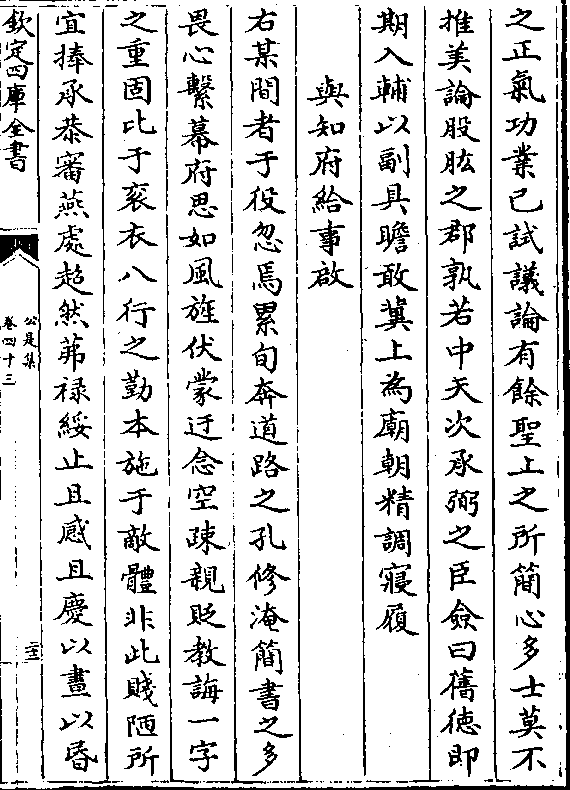 之正氣功業已試議論有餘聖上之所簡心多士莫不
推美論股肱之郡孰若中天次承弼之臣僉曰舊徳即
期入輔以副具瞻敢冀上為廟朝精調寢履
與知府給事啟
右某間者于役忽焉累旬奔道路之孔修淹簡書之多
畏心繫幕府思如風旌伏蒙迂念空疎親貶教誨一字
之重固比于衮衣八行之勤本施于敵體非此賤陋所
宜捧承恭審燕處超然茀禄綏止且感且慶以晝以昏
欽定四庫全書
公是集
卷四十三